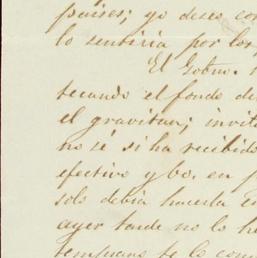 paises; yo deseo con
lo sentiria por los
El Gobno.
tecando el fondo de
el gravitan; invit
no sé si ha recibido
efectivo y bo. en p
solo debia hacerla en
ayer tarde no lo he
temprano te lo com